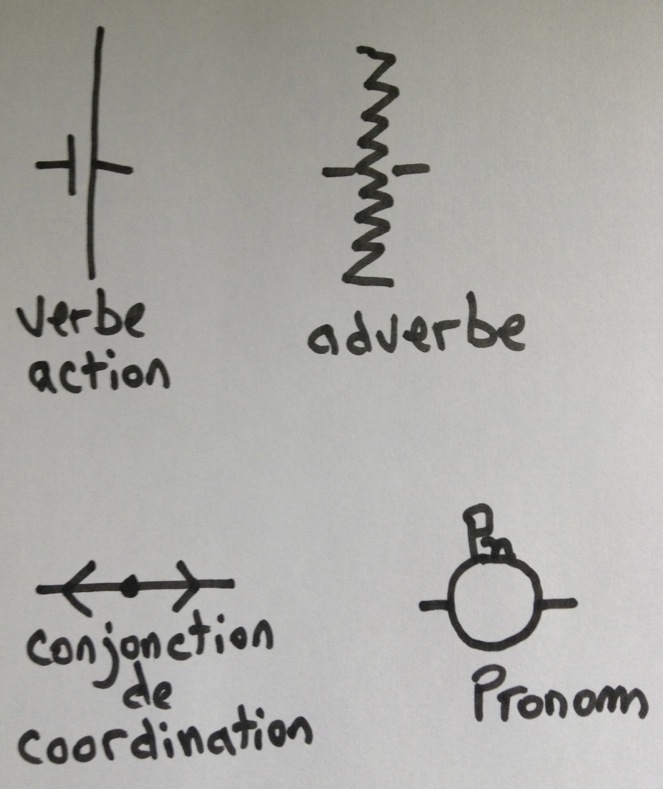 verbe
action
adverbe
conjonction
de
coordination
Pn
Pronom